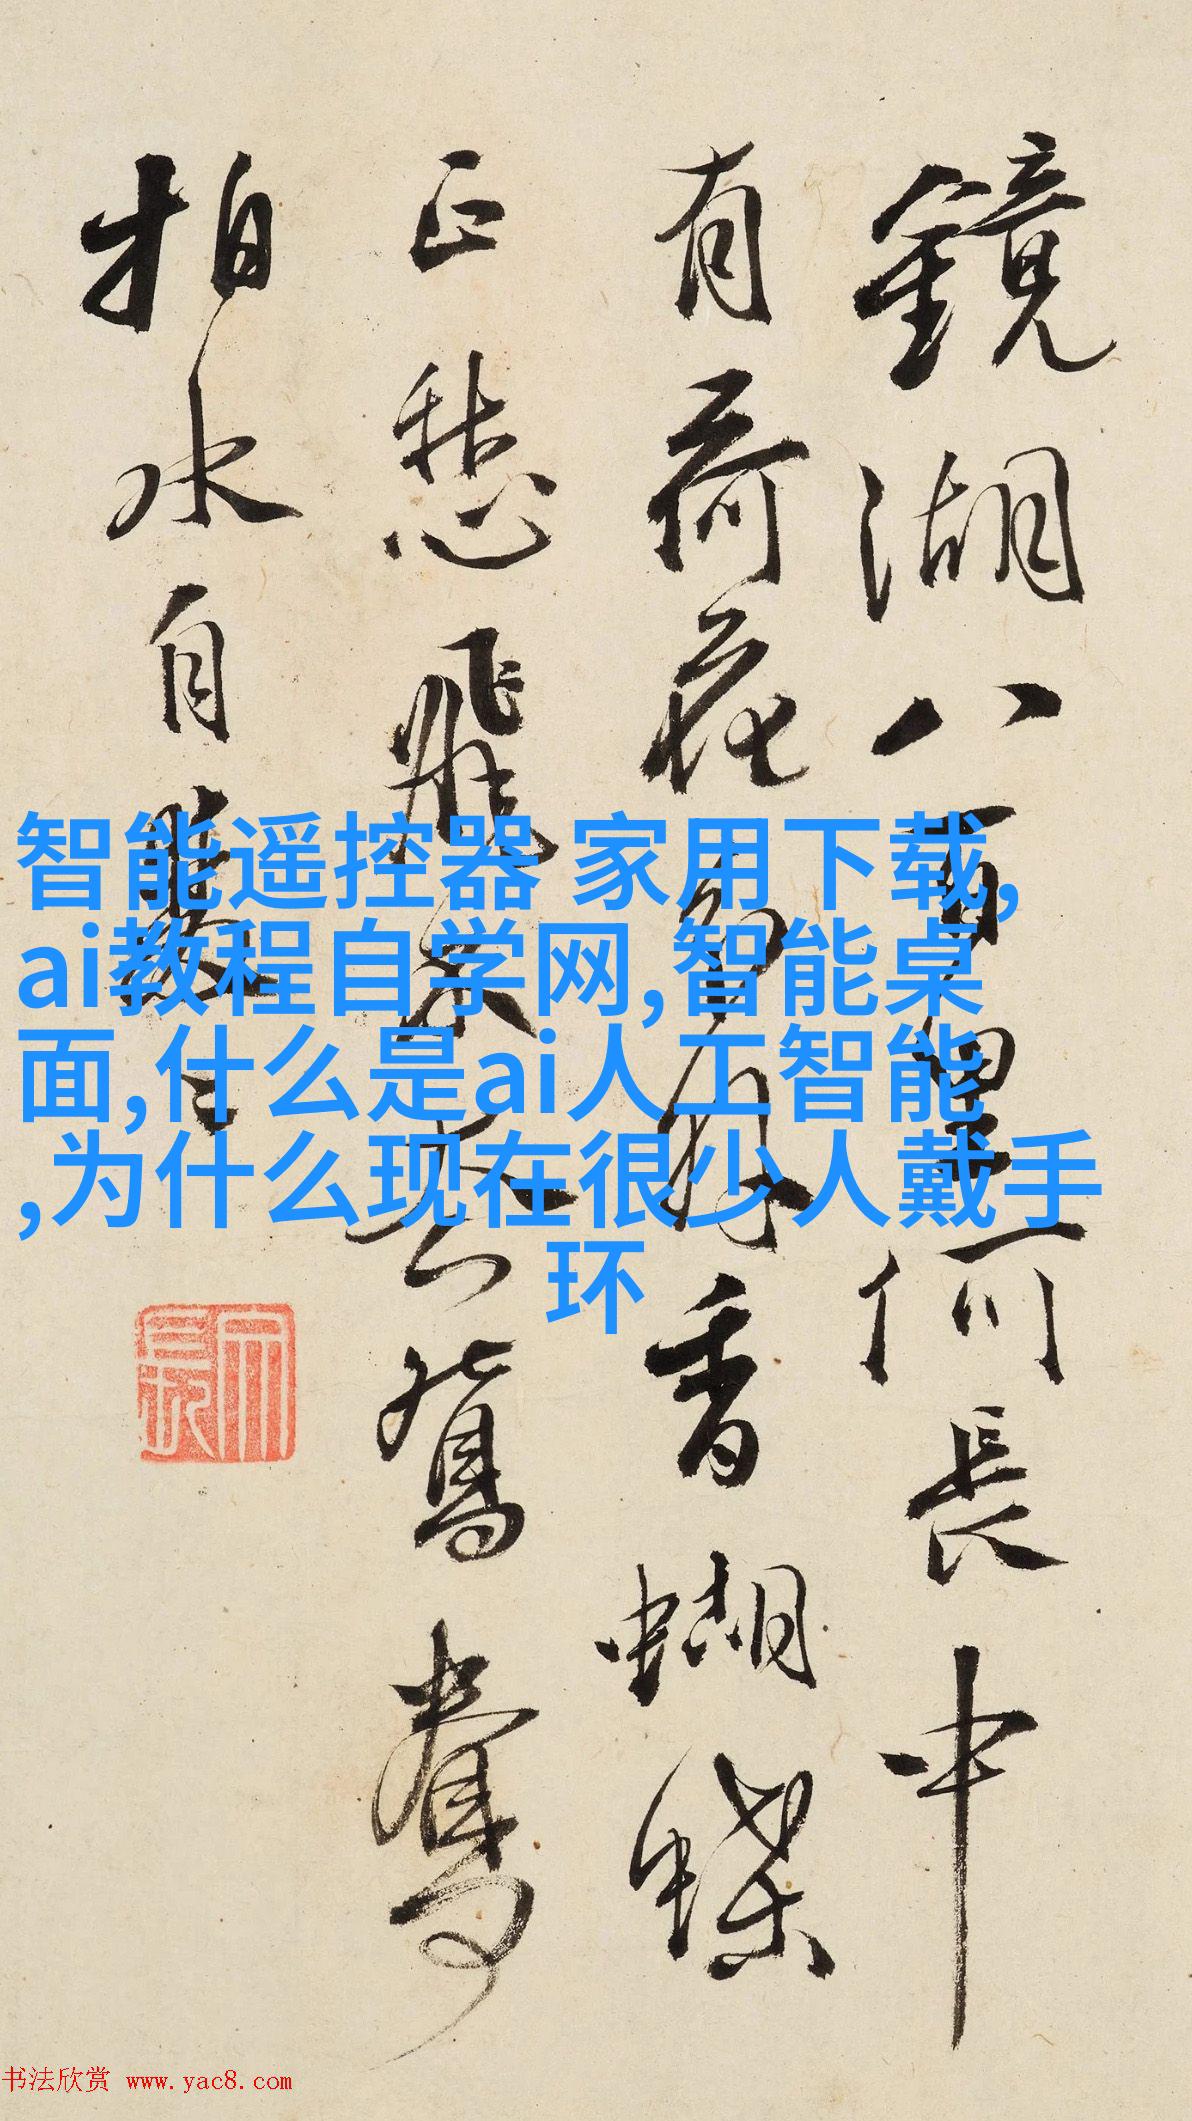 鏡湖八百里何長中
有荷花香蝴蝶
正愁飛鴛鴦
拍水自雙
智能遥控器 家用下载,
ai教程自学网,智能桌
面,什么是ai人工智能
,为什么现在很少人戴手
环
书法欣赏 www.yac8.com